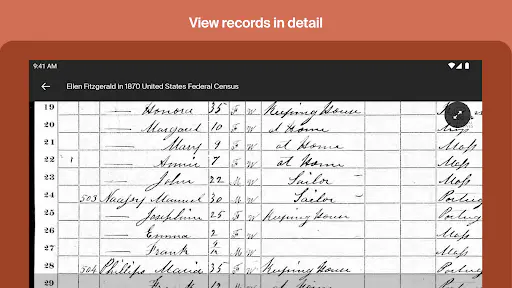 View records in detail
9:41 AM
Ellen Fitzgerald in 1870 United States Federal Census
19 — Honora 35 F W Keeping House
20 — Margaret 10 F W at Home
21 — Mary 9 F W at Home Mass
22 1 — Annie 7 F W at Home Mass
23 — John 22 M W Sailor Mass
24 503 Manuel 30 M W Sailor Portug
25 — Josephine 25 F W Keeping House Portug
26 — Emma 2 F W Mass
27 — Frank M W Mass
28 504 Phillips Maria 35 F W Keeping House Portug
29 — Frank 12 M W at Home